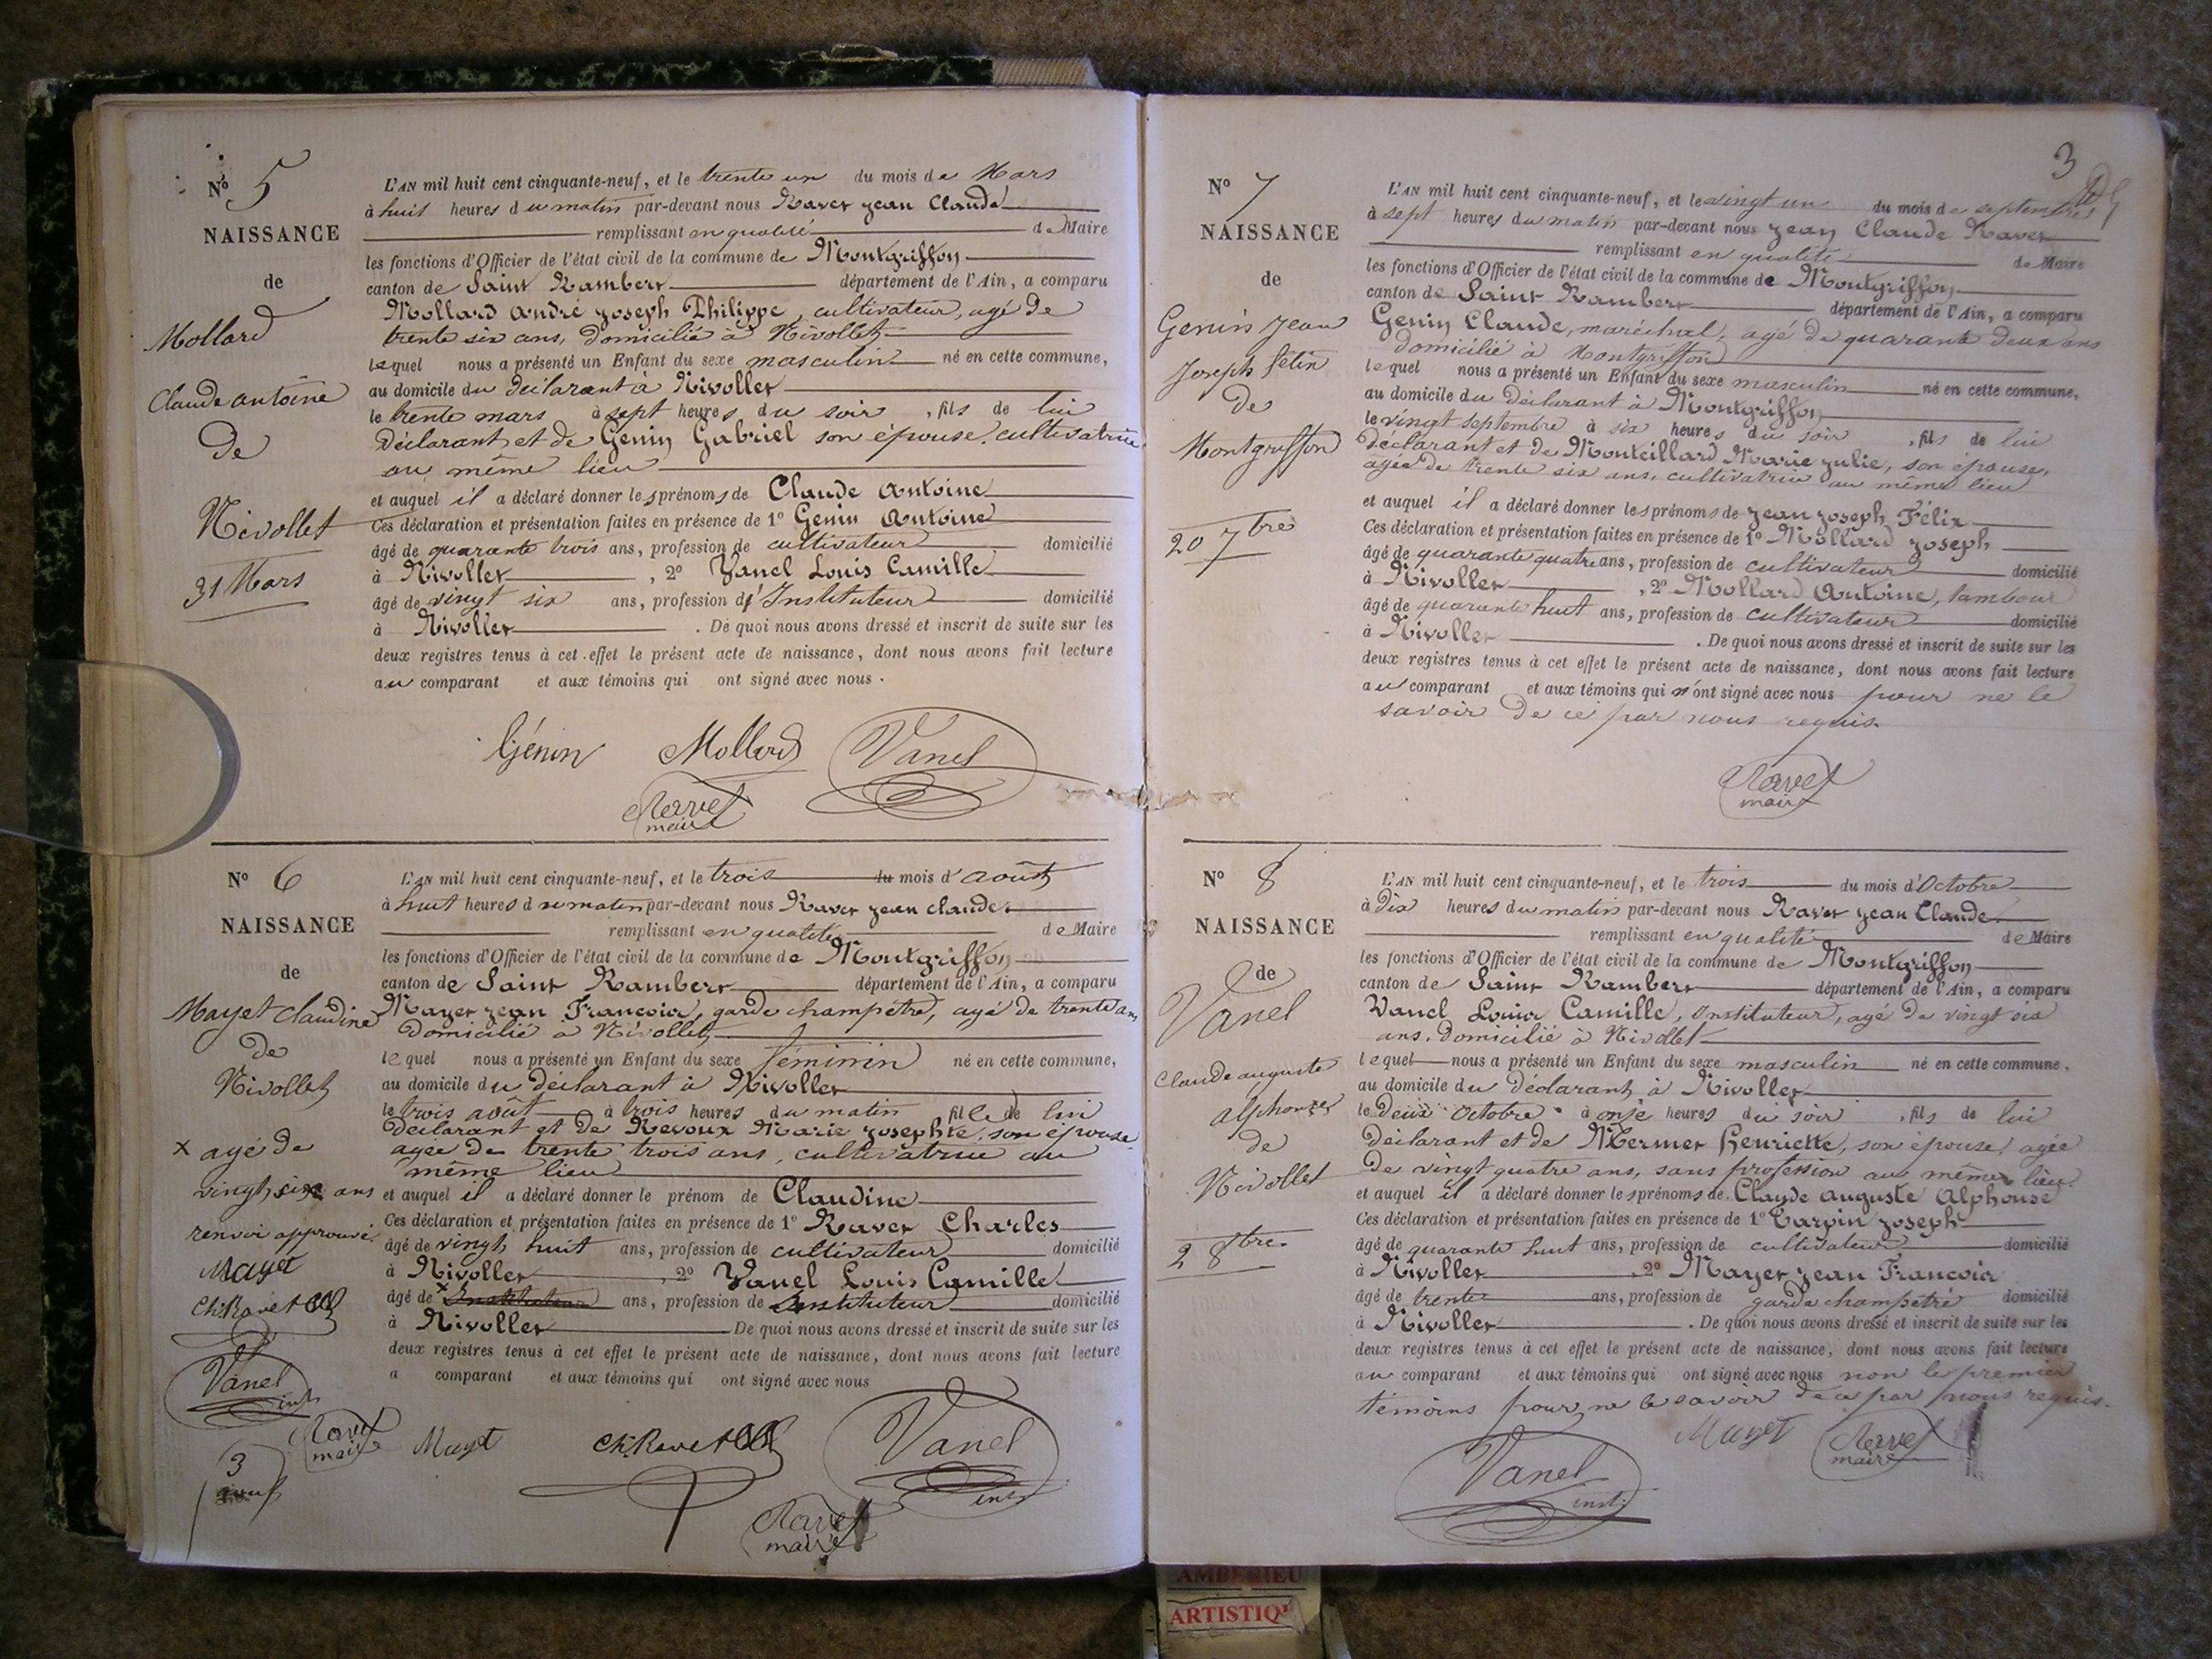 N° 5
NAISSANCE
de
Mollard
Claude antoine
De
Nivollet
31 Mars
L'AN mil huit cent cinquante-neuf, et le trente un du mois de Mars
à huit heures du matin par-devant nous Ravet jean Claude
remplissant en qualité de Maire
les fonctions d'Officier de l'état civil de la commune de Montgriffon
canton de Saint Rambert département de l'Ain, a comparu
Mollard André joseph Philippe, cultivateur, agé de
trente six ans, domicilié à Nivollet
lequel nous a présenté un Enfant du sexe masculin né en cette commune,
au domicile du déclarant à Nivollet
le trente mars à sept heures du soir, fils de lui
Déclarant et de Genin Gabriel son épouse, cultivatrice
au même lieu
et auquel il a déclaré donner les prénoms de Claude Antoine
Ces déclaration et présentation faites en présence de 1° Genin Antoine
âgé de quarante trois ans, profession de cultivateur domicilié
à Nivollet, 2° Vanel Louis Camille
âgé de vingt six ans, profession d'Instituteur domicilié
à Nivollet. De quoi nous avons dressé et inscrit de suite sur les
deux registres tenus à cet effet le présent acte de naissance, dont nous avons fait lecture
au comparant et aux témoins qui ont signé avec nous.
Génin Mollard Vanel
Ravet
maire
N° 6
NAISSANCE
de
Mayet Claudine
De
Nivollet
x agé de
vingt six ans
renvoi approuvé
Mayet
Ch. Ravet
Vanel
inst
Ravet
maire
3
aout
L'AN mil huit cent cinquante-neuf, et le trois du mois d'août
à huit heures du matin par-devant nous Ravet jean claude
remplissant en qualité de Maire
les fonctions d'Officier de l'état civil de la commune de Montgriffon
canton de Saint Rambert département de l'Ain, a comparu
Mayet jean Francois, garde champetre, agé de trente ans
Domicilié à Nivollet
lequel nous a présenté un Enfant du sexe féminin né en cette commune,
au domicile du déclarant à Nivollet
le trois août à trois heures du matin, fille de lui
déclarant et de Revoux Marie josephte, son épouse
agée de trente trois ans, cultivatrice au
même lieu
et auquel il a déclaré donner le prénom de Claudine
Ces déclaration et présentation faites en présence de 1° Ravet Charles
âgé de vingt huit ans, profession de cultivateur domicilié
à Nivollet, 2° Vanel Louis Camille
âgé de x Instituteur ans, profession de Instituteur domicilié
à Nivollet De quoi nous avons dressé et inscrit de suite sur les
deux registres tenus à cet effet le présent acte de naissance, dont nous avons fait lecture
a comparant et aux témoins qui ont signé avec nous
Mayet Ch. Ravet Vanel
inst
Ravet
maire
3
N° 7
NAISSANCE
de
Genin jean
joseph félix
De
Montgriffon
20 7bre
L'AN mil huit cent cinquante-neuf, et le vingt un du mois de septembre
à sept heures du matin par-devant nous jean Claude Ravet
remplissant en qualité de Maire
les fonctions d'Officier de l'état civil de la commune de Montgriffon
canton de Saint Rambert département de l'Ain, a comparu
Genin Claude, maréchal, agé de quarante deux ans
domicilié à Montgriffon
lequel nous a présenté un Enfant du sexe masculin né en cette commune,
au domicile du déclarant à Montgriffon
le vingt septembre à six heures du soir, fils de lui
déclarant et de Monteillard Marie julie, son épouse,
agée de trente six ans, cultivatrice au même lieu
et auquel il a déclaré donner les prénoms de jean joseph Félix
Ces déclaration et présentation faites en présence de 1° Mollard joseph
âgé de quarante quatre ans, profession de cultivateur domicilié
à Nivollet, 2° Mollard Antoine, tambour
âgé de quarante huit ans, profession de cultivateur domicilié
à Nivollet. De quoi nous avons dressé et inscrit de suite sur les
deux registres tenus à cet effet le présent acte de naissance, dont nous avons fait lecture
au comparant et aux témoins qui n'ont signé avec nous pour ne le
savoir de ce par nous requis.
Ravet
maire
N° 8
NAISSANCE
de
Vanel
Claude auguste
alphonse
de
Nivollet
2 8bre.
L'AN mil huit cent cinquante-neuf, et le trois du mois d'Octobre
à Dix heures du matin par-devant nous Ravet jean Claude
remplissant en qualité de Maire
les fonctions d'Officier de l'état civil de la commune de Montgriffon
canton de Saint Rambert département de l'Ain, a comparu
Vanel Louis Camille, Instituteur, agé de vingt six
ans, domicilié à Nivollet
lequel nous a présenté un Enfant du sexe masculin né en cette commune,
au domicile du déclarant à Nivollet
le deux Octobre à onze heures du soir, fils de lui
déclarant et de Mermet Henriette, son épouse, agée
de vingt quatre ans, sans profession au même lieu
et auquel il a déclaré donner les prénoms de Claude auguste Alphonse
Ces déclaration et présentation faites en présence de 1° Tarpin joseph
âgé de quarante huit ans, profession de cultivateur domicilié
à Nivollet, 2° Mayet jean Francois
âgé de trente ans, profession de garde champêtre domicilié
à Nivollet. De quoi nous avons dressé et inscrit de suite sur les
deux registres tenus à cet effet le présent acte de naissance, dont nous avons fait lecture
au comparant et aux témoins qui ont signé avec nous non le premier
témoins pour ne le savoir de ce par nous requis.
Mayet Ravet
maire
Vanel
inst.
AMBERIEU
ARTISTIQU